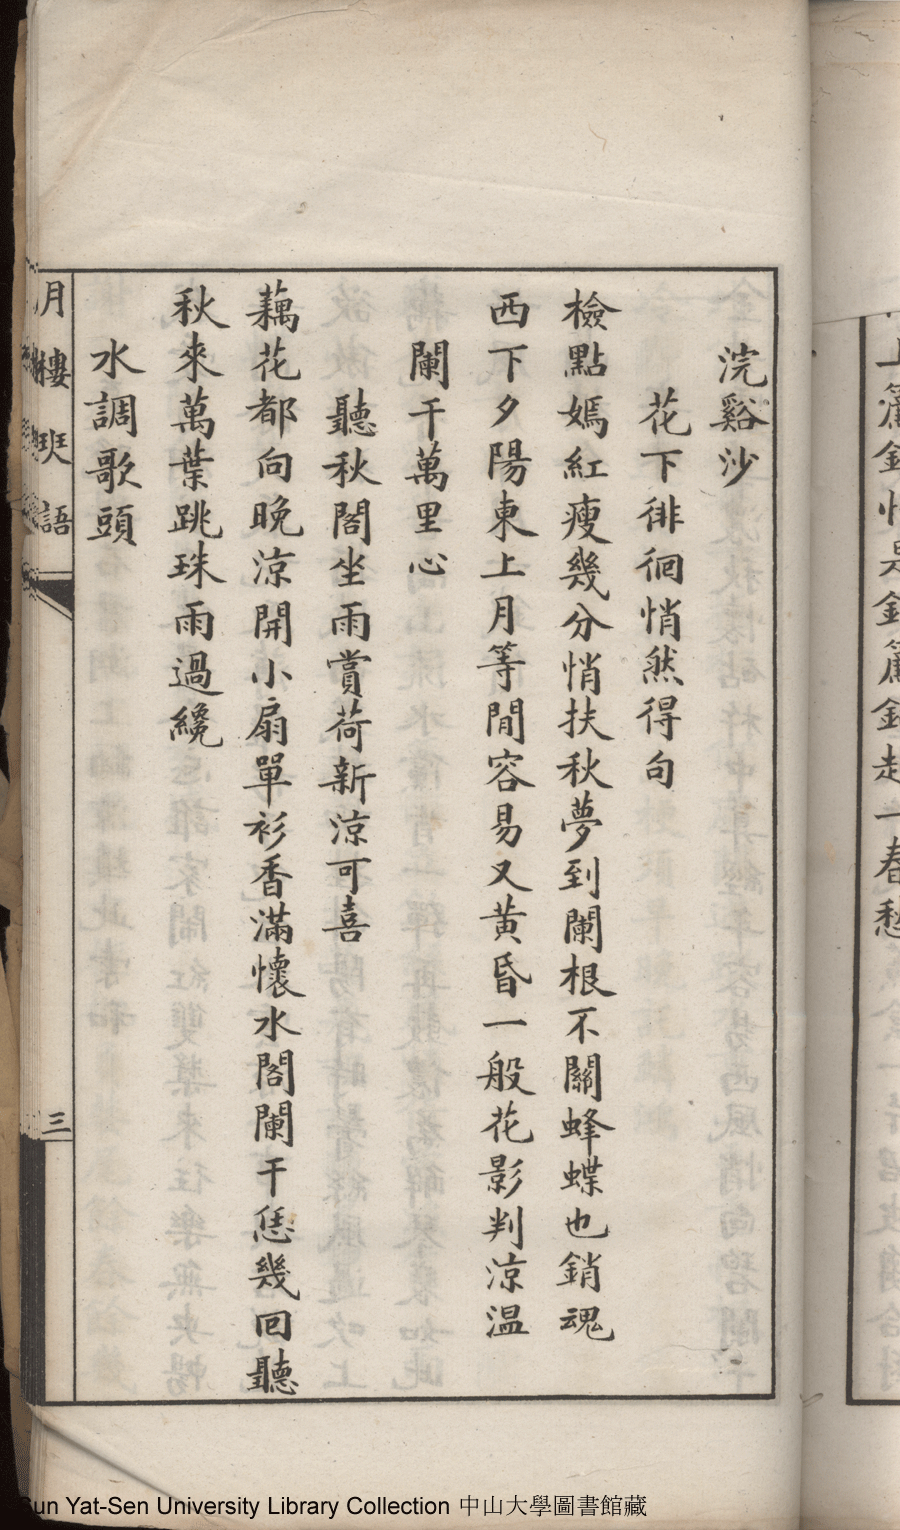 浣谿沙
花下徘徊悄然得句
檢點嫣紅瘦幾分悄扶秋夢到闌根不關蜂蝶也銷魂
西下夕陽東上月等閒容易又黃昏一般花影判涼溫
闌干萬里心
聽秋閣坐雨賞荷新涼可喜
藕花都向晚涼開小扇單衫香滿懷水閣闌干恁幾回聽
秋來萬葉跳珠雨過纔
水調歌頭
月樓琖語
三
Sun Yat-Sen University Library Collection 中山大學圖書館藏